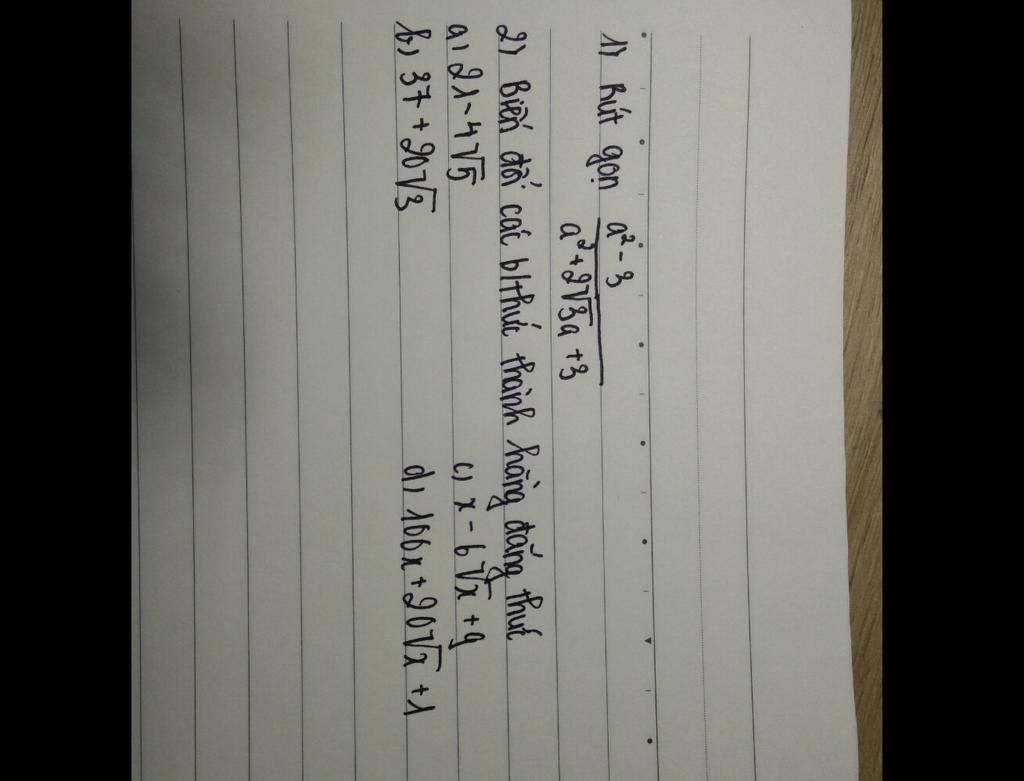 1) Rút gọn a² - 3
a² + 2√3a + 3
2) Biến đổi các b/thức thành hằng đẳng thức
a, 21 - 4√5
c, x - 6√x + 9
b, 37 + 20√3
d, 100x + 20√x + 1